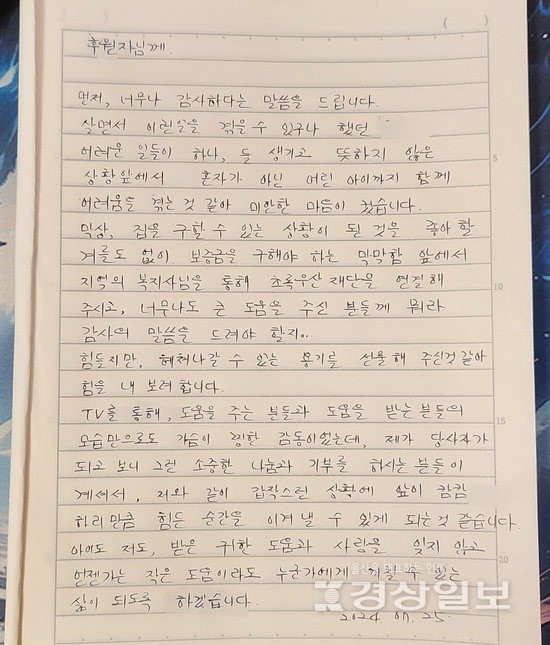 ( )
후원자님께.
먼저, 너무나 감사하다는 말씀을 드립니다.
살면서 이런일을 겪을 수 있구나 했던
어려운 일들이 하나, 둘 생기고 뜻하지 않은
상황앞에서 혼자가 아닌 어린 아이까지 함께
어려움을 겪는것 같아 미안한 마음이 컸습니다.
막상, 집을 구할 수 있는 상황이 된 것을 좋아 할
겨를도 없이 보증금을 구해야 하는 막막함 앞에서
지역의 복지사님을 통해 초록우산 재단을 연결해
주시고, 너무나도 큰 도움을 주신 분들께 뭐라
감사의 말씀을 드려야 할지..
힘들지만, 헤쳐나갈 수 있는 용기를 선물해 주신것 같아
힘을 내 보려합니다.
TV를 통해, 도움을 주는 분들과 도움을 받는 분들의
모습만으로도 가슴이 찡한 감동이었는데, 제가 당사자가
되고 보니 그런 소중한 나눔과 기부를 하시는 분들이
계셔서, 저와 같이 갑작스런 상황에 앞이 캄캄
하리만큼 힘든 순간을 이겨낼 수 있게 되는것 같습니다.
아이도 저도, 받은 귀한 도움과 사랑을 잊지 않고
언젠가는 작은 도움이라도 누군가에게 수 있는
삶이 되도록 하겠습니다.
2024. 07. 25.
5
10
15
20
경상일보